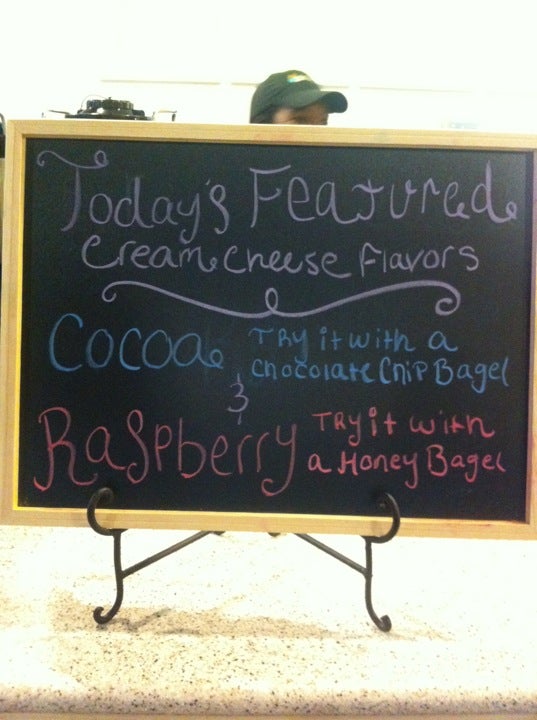 Today's Featured
Cream Cheese Flavors
Cocoa Try it with a
chocolate Chip Bagel
&
Raspberry Try it with
a Honey Bagel